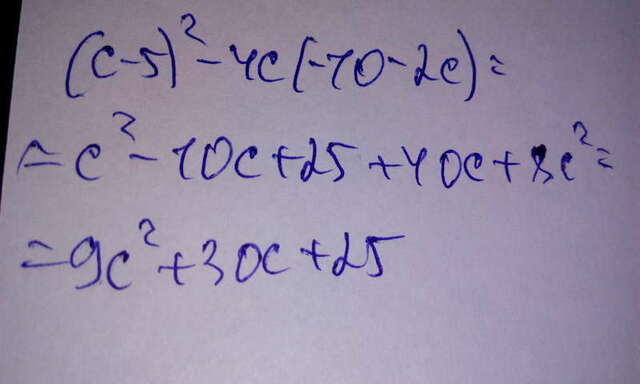 (c-5)²-4c(-10-2c)=
=c²-10c+25+40c+8c²=
=9c²+30c+25